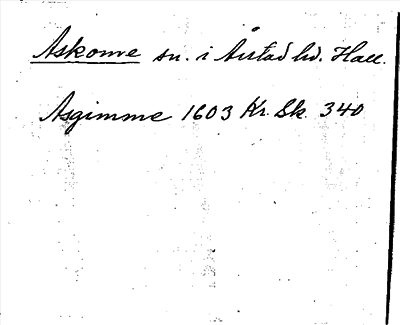 Askome sn. i Årstad hd. Hall.
Asgimme 1603 Kr. Sk. 340